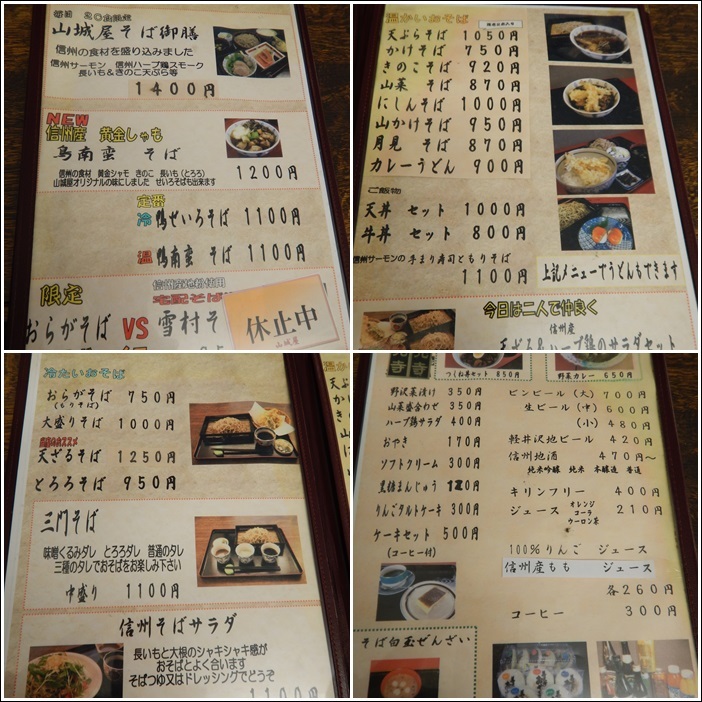 毎日 20食限定
山城屋そば御膳
信州の食材を盛り込みました
信州サーモン 信州ハーブ鶏スモーク
長いも&きのこ天ぷら等
1400円
NEW
信州産 黄金しゃも
鳥南蛮 そば
信州の食材 黄金シャモ きのこ 長いも(とろろ)
山城屋オリジナルの味にしました せいろそばも出来ます
1200円
定番
冷 鴨せいろそば 1100円
温 鴨南蛮 そば 1100円
限定
信州産地粉使用
宅配そば
おらがそば VS 雪村そ
休止中
山城屋
温かいおそば
天ぷらそば 1050円
かけそば 750円
きのこそば 920円
山菜 そば 870円
にしんそば 1000円
山かけそば 950円
月見 そば 870円
カレーうどん 900円
ご飯物
天丼 セット 1000円
牛丼 セット 800円
信州サーモンの手まり寿司ともりそば
1100円
上記メニューでうどんもできます
今日は二人で仲良く
信州産
天ざる&ハーブ鶏のサラダセット
冷たいおそば
おらがそば 750円
(もりそば)
大盛りそば 1000円
天ざるそば 1250円
とろろそば 950円
三門そば
味噌くるみダレ とろろダレ 普通のタレ
三種のタレでおそばをお楽しみ下さい
中盛り 1100円
信州そばサラダ
長いもと大根のシャキシャキ感が
おそばとよく合います
そばつゆ又はドレッシングでどうぞ
1100
温かいおそば
天ぷ
かけ
きの
山
に
山
つくね丼セット 650円
野菜カレー 650円
野沢菜漬け 350円
山菜盛合わせ 350円
ハーブ鶏サラダ 400円
おやき 170円
ソフトクリーム 300円
黒糖まんじゅう 120円
りんごタルトケーキ 300円
ケーキセット 500円
(コーヒー付)
そば白玉ぜんざい
ビンビール (大) 700円
生ビール (中) 600円
(小) 480円
軽井沢地ビール 420円
信州地酒 470円~
純米吟醸 純米 本醸造 普通
キリンフリー 400円
ジュース オレンジ コーラ ウーロン茶 210円
100%りんご ジュース
信州産もも ジュース
各260円
コーヒー 300円